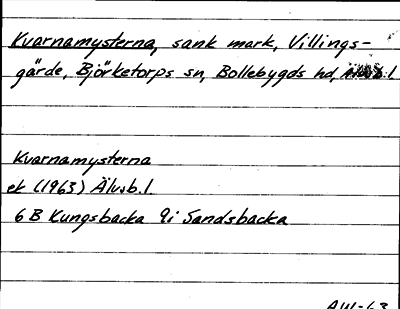 Kvarnamysterna, sank mark, Villings-
gärde, Björketorps sn, Bollebygds hd, Älvsb. l
Kvarnamysterna
ek (1963) Älvsb. l
6 B Kungsbacka 9i Sandsbacka
AW-63